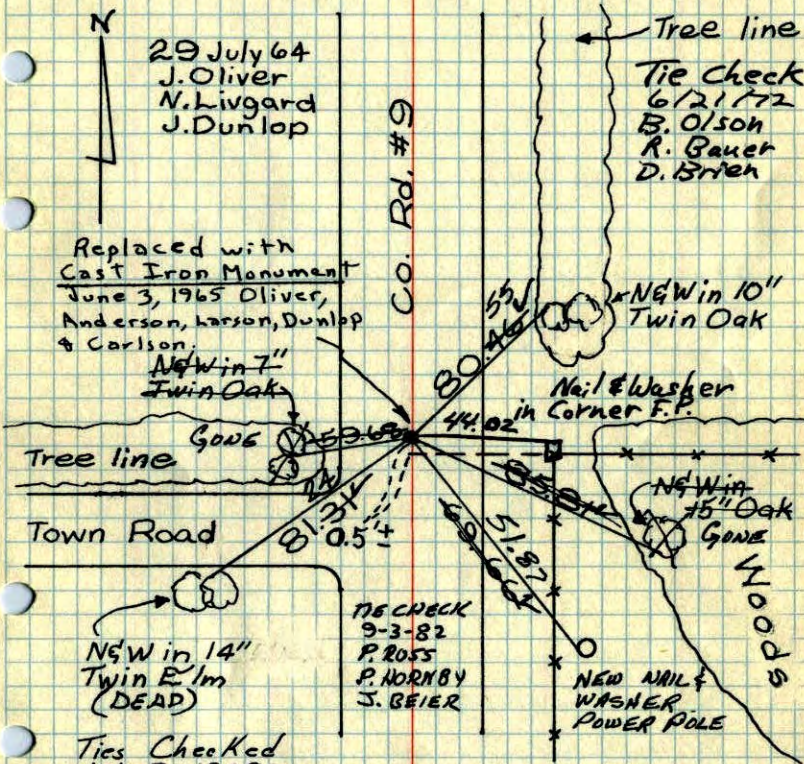 N
29 July 64
J. Oliver
N. Livgard
J. Dunlop
Co. Rd. #9
Tree line
Tie Check
6/21/72
B. Olson
R. Bauer
D. Brien
Replaced with
Cast Iron Monument
June 3, 1965 Oliver,
Anderson, Larson, Dunlop
& Carlson.
N&W in 7"
Twin Oak
GONE
59.68
55 ✓
80.46
N&W in 10"
Twin Oak
Nail & Washer
in Corner F.P.
44.02
Tree line
Town Road
24
81.31 ✓
0.5' ±
51.87
N&W in
15" Oak
GONE
Woods
N&W in 14"
Twin Elm
(DEAD)
TIE CHECK
9-3-82
P. ROSS
P. HORNBY
J. BEIER
NEW NAIL &
WASHER
POWER POLE
Ties Checked